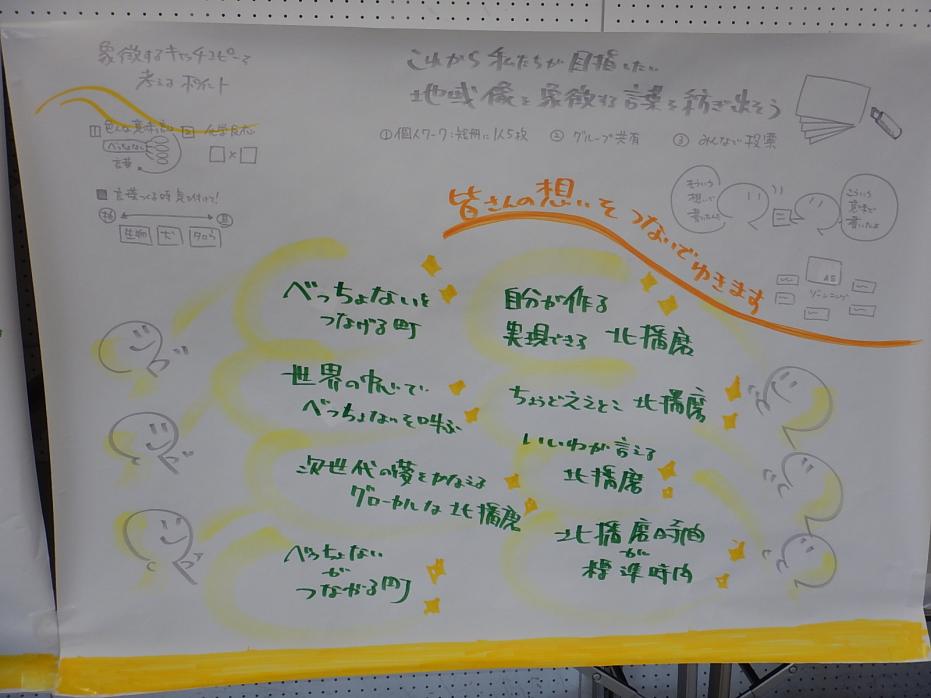 象徴するキャッチコピーを
考えるポイント
これから私たちが目指したい
地域像を象徴する言葉を紡ぎ出そう
①個人ワーク：短冊に1人5枚 ② グループ共有 ③ みんなで投票
べっちょない
言葉
化学反応
□×□
言葉つくる時気を付けて！
抽 具
生物 犬 タロウ
そういう
想いで
書いたんだ
こういう
意味で
書いたよ
A5
ゾーニング
皆さんの想いをつないでゆきます
べっちょないを
つなげる町
世界の中心で
べっちょないを叫ぶ
次世代の夢をかなえる
グローカルな北播磨
べっちょない
が
つながる町
自分が作る
実現できる 北播磨
ちょうどええとこ 北播磨
いいわが言える
北播磨
北播磨時間
が
標準時間